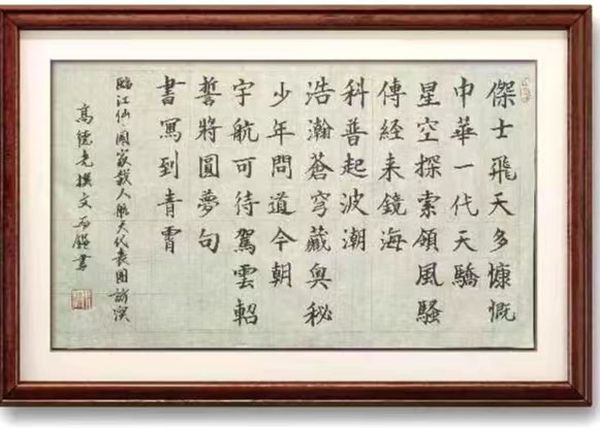 傑士飛天多慷慨
中華一代天驕
星空探索領風騷
傳經来鏡海
科普起波潮
浩瀚蒼穹藏奥秘
少年問道今朝
宇航可待駕雲軺
誓將圓夢句
書寫到青霄
臨江仙·國家载人航天代表团訪澳
高德光撰文 書